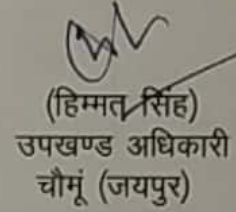 (हिम्मत सिंह)
उपखण्ड अधिकारी
चौमूं (जयपुर)